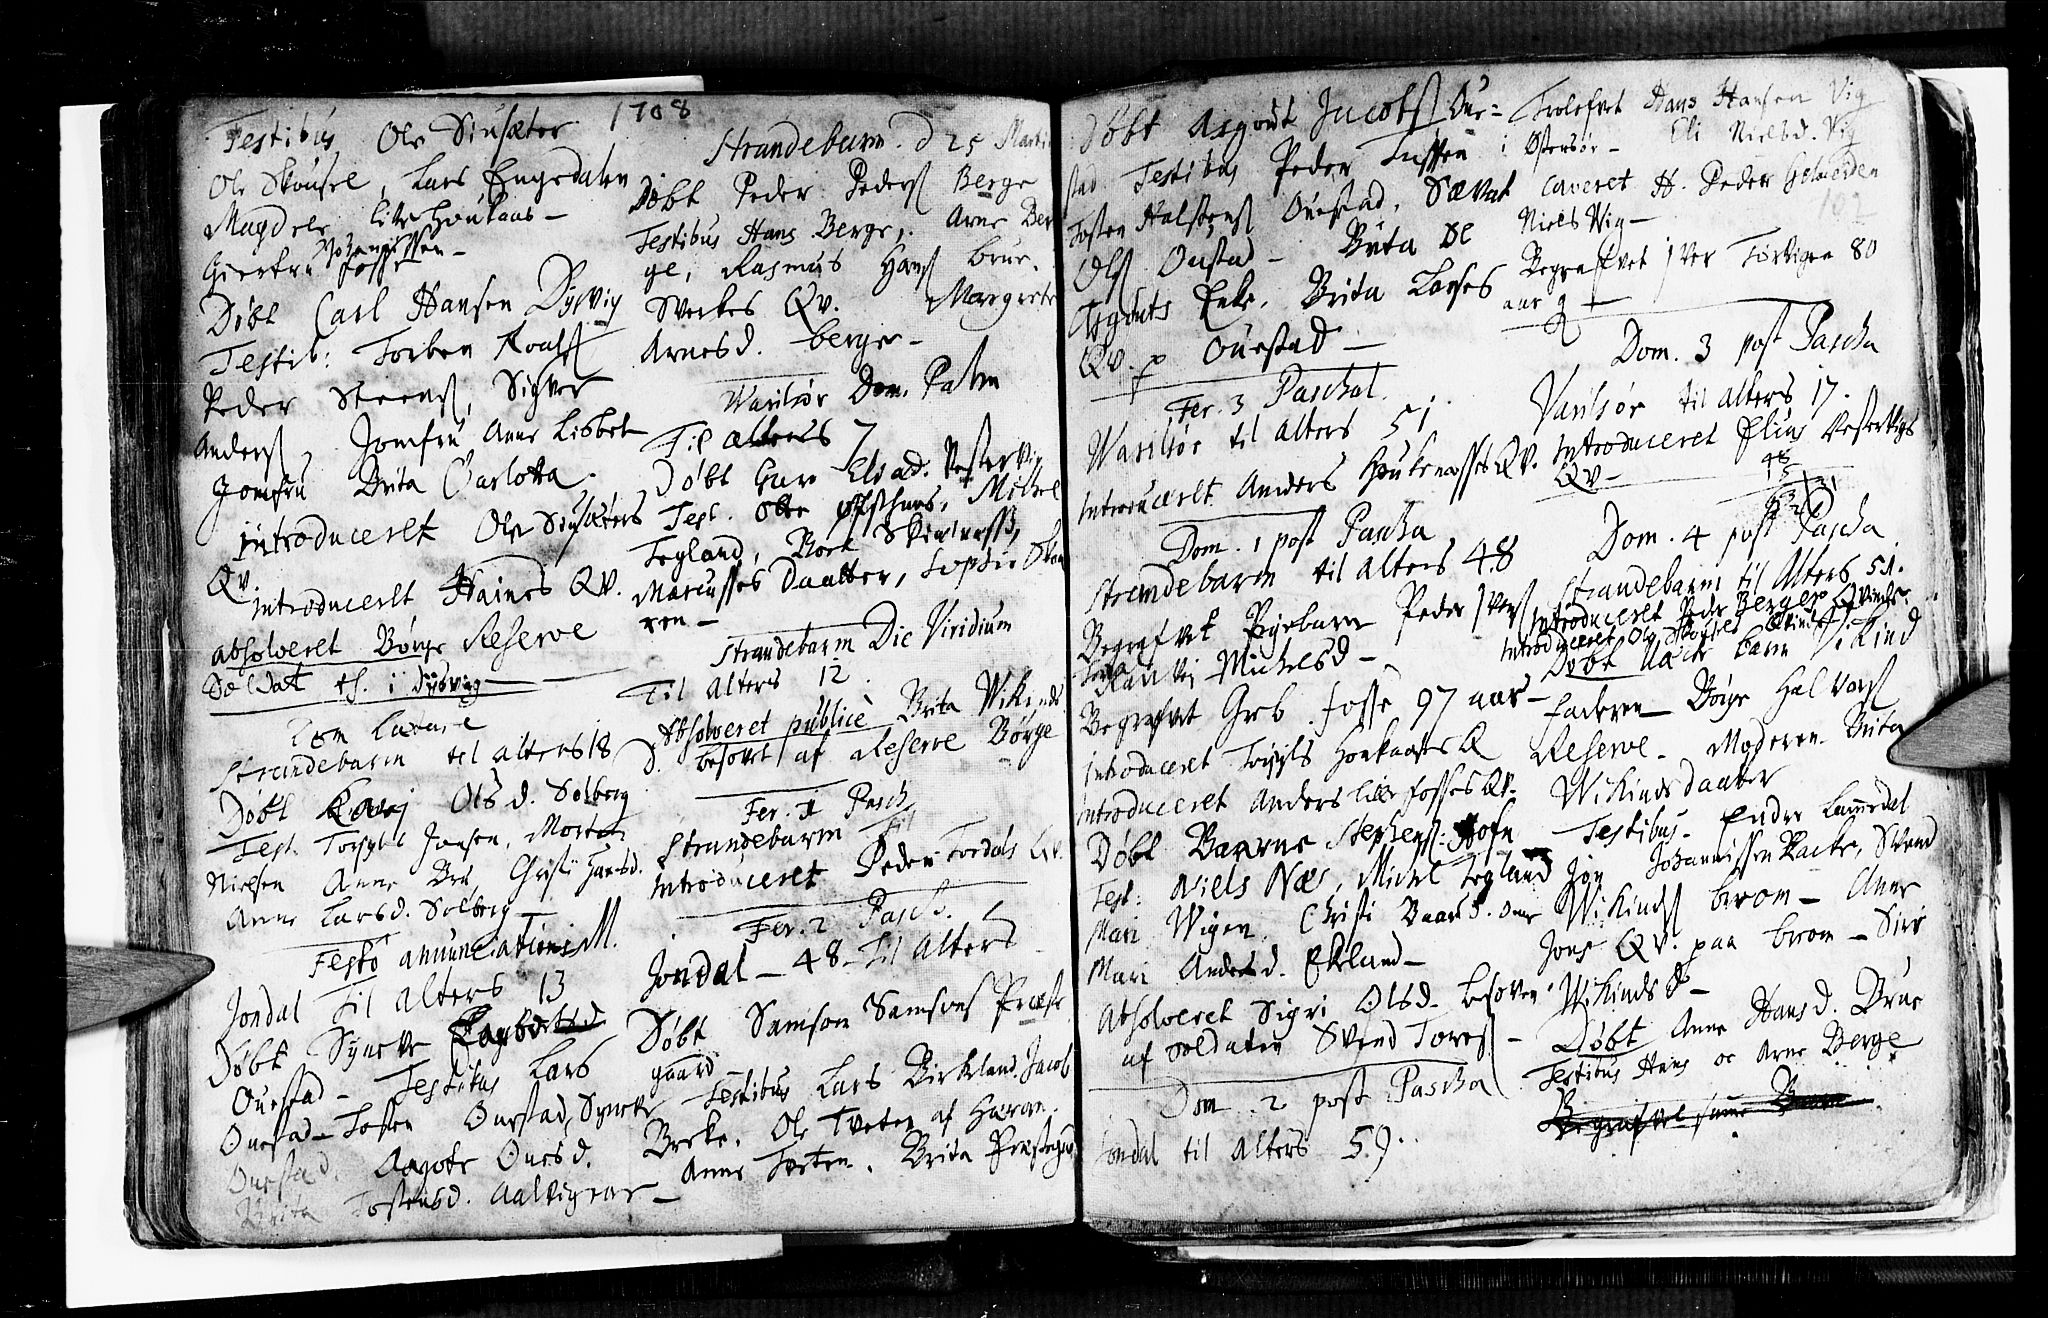 1708
Testibus Ole Siusæter
Ole Skousel, Lars Engedalen
Magdele lille Houkaas –
Giertru Johannessen –
Fosse
Døbt Carl Hansen Dysvig
Testib: Torben Roalds
Peder Steens, Sigver
Anders, Jomfru Anne Lisbet
Jomfru Brita Carlotta
introduceret Ole Siusæters
Qv.
introduceret Haines Qv.
absolveret Børge Reserve
Soldat th. i Dysvig
Dom Lætare
Strandebarm til alters 18
Døbt Kari Ols d. Solberg
Test. Torgyls Jonsen, Morten
Nielsen Anne Bru, Christi Hansd.
Anne Larsd. Solberg
Festo annunciationis M.
Jondal til alters 13
Døbt Syneve
Ouestad – Testibus Lars
Ouestad – Tosten Ouestad, Syneve
Ouestad. Aagote Ouesd.
Brita Tostensd. Aalvignes –
Strandebarm. d 25 Martii
Døbt Peder Peders Berge
Testibus Hans Berge, Arne Ber
ge, Rasmus Hans Brue.
Sverkes Qv. Margrete
Arnesd. berge –
Warilsør Dom. Palm
Til alters 7
Døbt Guro Eliæd. Vestervig
Test. Michel
Tegland, Skiælnæss,
Marcusses Daatter, Sophie Skaa
ren –
Strandebarm Die Viridium
Til alters 12
Absolveret publicè Brita Wikinds
D. besovet af Reserve Børge
Fer. 1 Pasch.
Strandebarm Til
introduceret Peder Tordals Qv.
Fer. 2 Pasch.
Jondal – 48 – til alters
Døbt Samson Samsons Præste
gaard
Testibus Lars Birkeland, Jacob
Berke. Ole Tveten af Haran.
Anne Torten. Brita Præstegaard
Døbt Asgout Jacobs Oue=
stad Testibus Peder Tussen i
Tosten Halstens Ouestad, Sævat
Ols Ouestad – Brita Ol
Asgouts Enke, Brita Larses
Qv. p Ouestad –
Fer. 3 Paschal.
Warilsør til alters 51.
introduceret Anders Houkenæsses Qv.
Dom. 1 post Pascha
Strandebarm til alters 48
Begrafvet Pigebarn Peder Ivers
Michelsd –
Begrafvet Greb. fosse 97 aar –
introduceret Torgyls Houkaases Q
introduceret Anders lille fosses Qv.
Døbt Baarne Stephens: Hofn
Test: Niels Næs, Michel Tegland
Mari Wigen, Christi Baards d.
Mari Anders d. Ekeland –
Absolveret Sigri Ols d. besoven
af soldaten Svend Tores –
Dom. 2 post Pascha
Jondal til alters 59.
Trolofvet Hans Hansen Vig
Østersør – Eli Nielsd. Vig
Caveret H. Peder
102
Niels Vig –
Begrafvet Iver Torvigen 80
aar g –
Dom. 3 post Pascha
Varilsør til alters 17.
introduceret Elias Vestervigs
Qv –
48
Dom. 4 post Pascha
Strandebarm til alters 51.
introduceret Peder Berges Qvinde
introduceret Ole Qvinde
Døbt Uæcte barn Vikind
Faderen – Børge Halvors
Reserve – Moderen Brita
Wikinds daatter
Testibus – Ender Lammedal
Jon Johannissen Racke, Svend
Wikinds brom – Anne
Jons Qv. paa brom – Siri
Wikinds d –
Døbt Anne Hans d. Brue
Testibus Hans oc Arne Berge
Begrafvet samme Barn